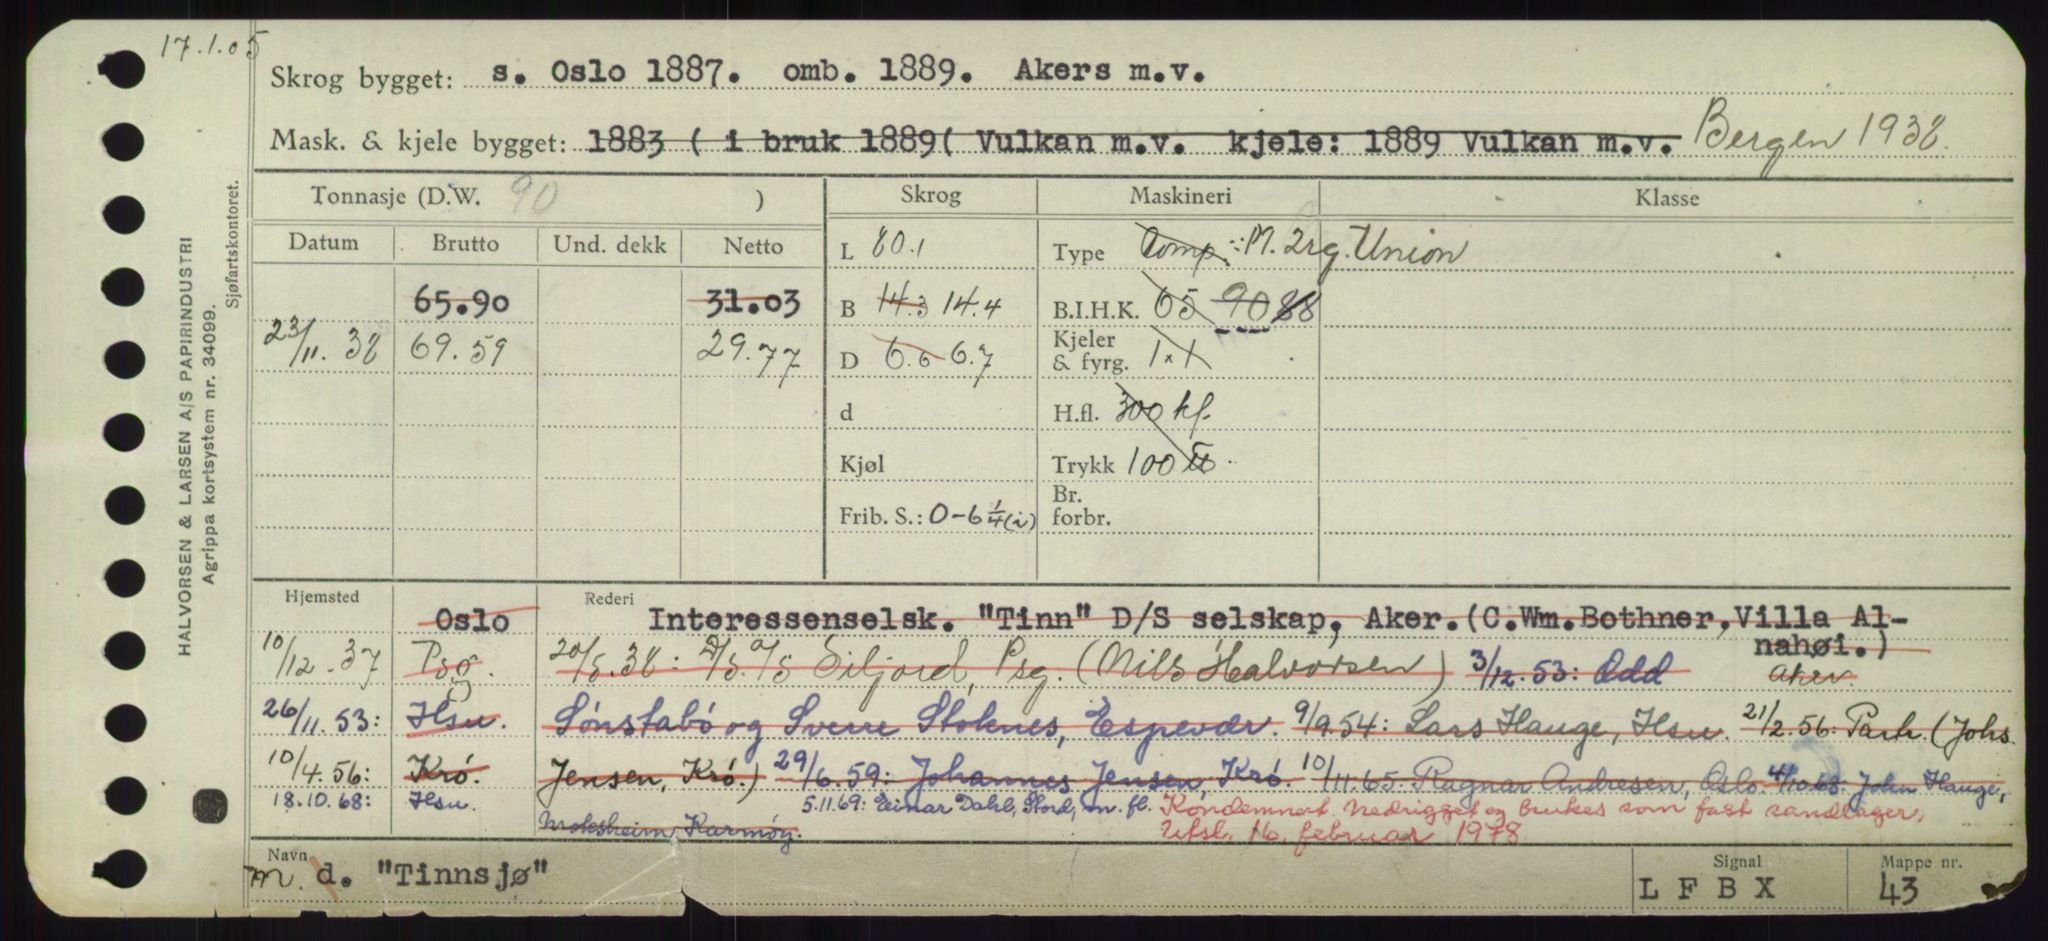 17.1.05
Skrog bygget: s. Oslo 1887. omb. 1889. Akers m.v.
Mask. & kjele bygget: 1883 ( i bruk 1889( Vulkan m.v. kjele: 1889 Vulkan m.v. Bergen 1938.
HALVORSEN & LARSEN A/S PAPIRINDUSTRI
Agrippa kortsystem nr. 34099.
Sjøfartskontoret.
Tonnasje (D.W. 90 ) Skrog Maskineri Klasse
Datum Brutto Und. dekk Netto
L 80.1 Type Comp. M. 2rg. Union
65.90 31.03 B 14.3 14.4 B.I.H.K. 65 90 88
23/11.38 69.59 29.77 D 6.6 6.7 Kjeler & fyrg. 1x1
d H.fl. 300 kf.
Kjøl Trykk 100
Frib. S.: 0-6 1/4 (i) Br. forbr.
Hjemsted Oslo Rederi Interessenselsk. "Tinn" D/S selskap, Aker. (C.Wm.Bothner, Villa Al-
nahøi.)
10/12.37 Psg. 20/5.38: D/S A/S Siljord, Psg. (Nils Halvorsen) 3/12.53: Odd Aker.
26/11.53: Hsu. Sønstabø og Sverre Stoknes, Espevær. 9/9.54: Lars Hauge, Hsu. 21/2.56: Partr. (Johs.
10/4.56: Krø. Jensen, Krø.) 29/6.59: Johannes Jensen, Krø. 10/11.65 Ragnar Andresen, Oslo. 4/10.68: John Hauge,
18.10.68: Hsu. 5.11.69: Einar Dahl, Stord, m. fl. Kondemnert. Nedrigget og brukes som fast sandlager,
Karmøy. Utsl. 16. februar 1978.
Navn m. d. "Tinnsjø" Signal LFBX Mappe nr. 43